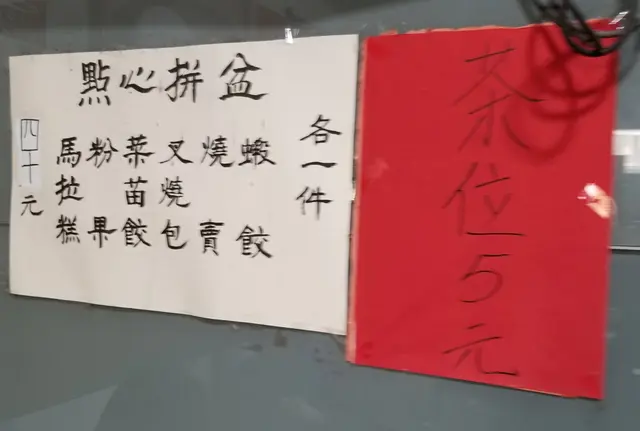 點心拼盆
各一件
蝦餃
燒賣
叉燒包
菜苗餃
粉果
馬拉糕
四十元
茶位5元